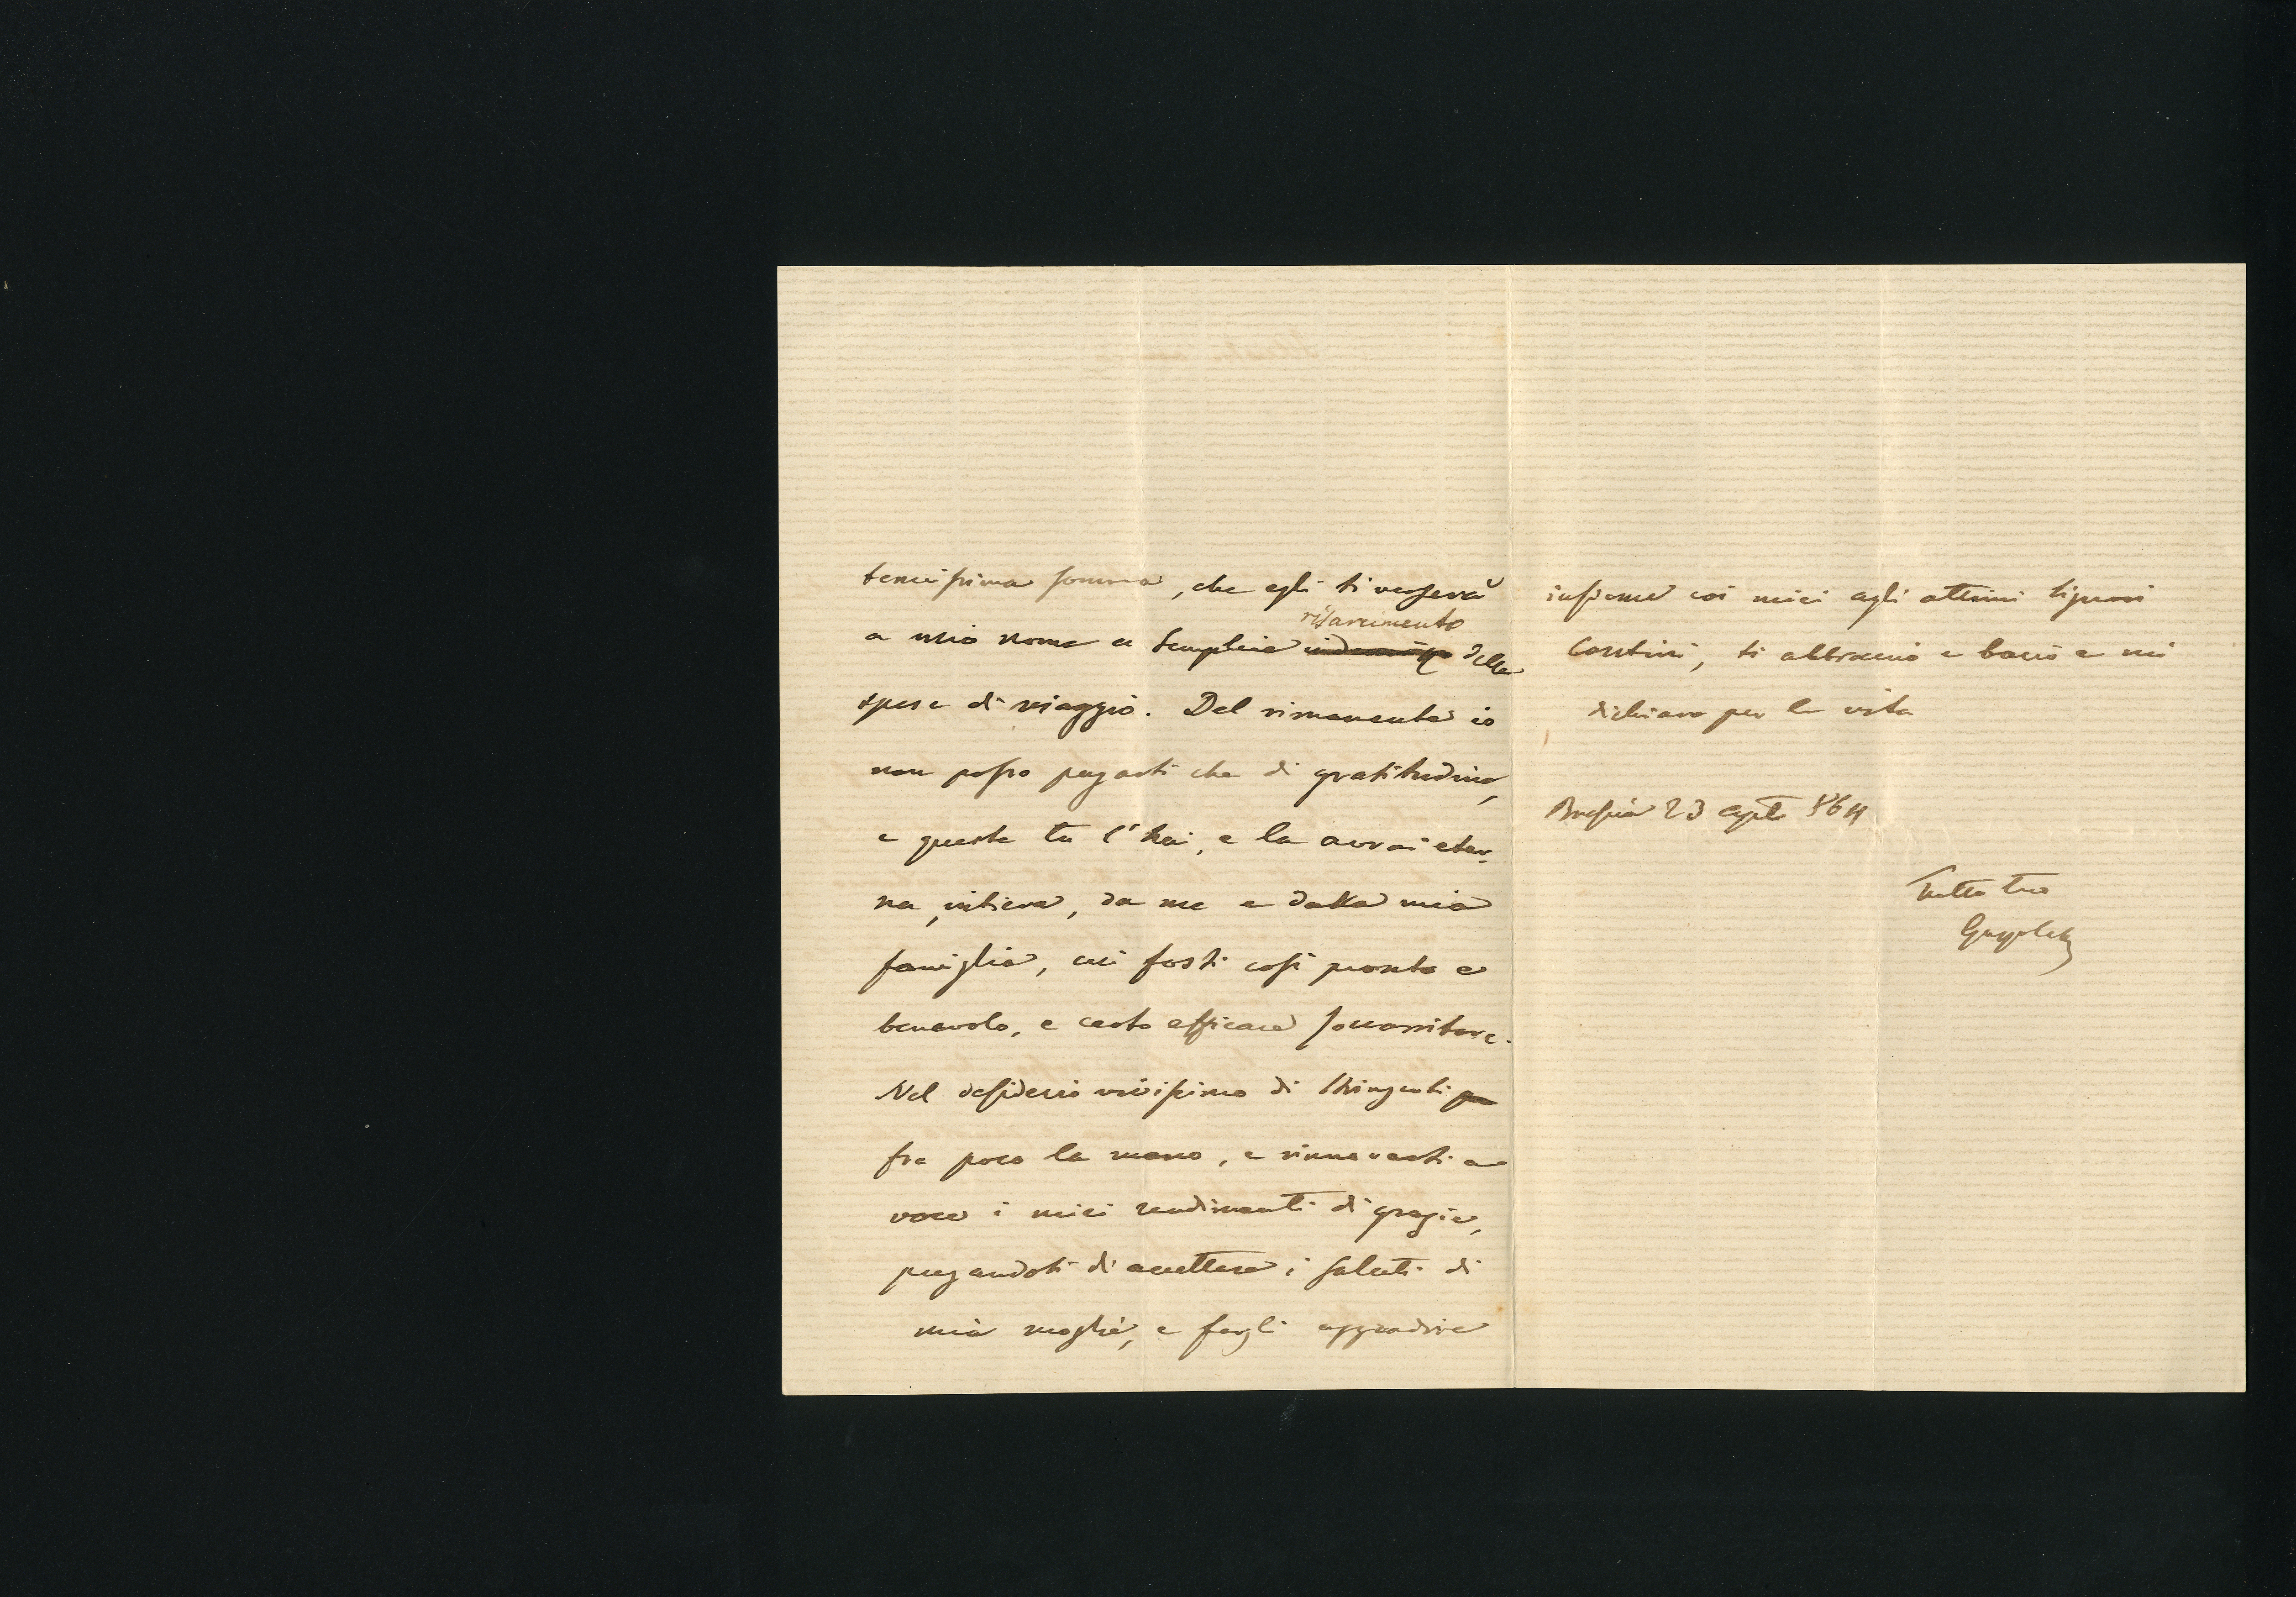 tenuissima somma, che egli ti verserà
a mio nome a semplice risarcimento delle
spese di viaggio. Del rimanente io
non posso pagarti che di gratitudine,
e questa tu l'hai, e la avrai eter-
na, intiera, da me e dalla mia
famiglia, cui fosti così pronto e
benevolo, e certo efficace soccorritore.
Nel desiderio vivissimo di stringerti
fra poco la mano, e rinnovarti a
voce i miei rendimenti di grazie,
pregandoti di accettare i saluti di
mia moglie, e fargli aggradire
insieme coi miei agli ottimi signori
Contini, ti abbraccio e bacio e mi
dichiaro per la vita
Brescia 23 agto 864
Tutto tuo